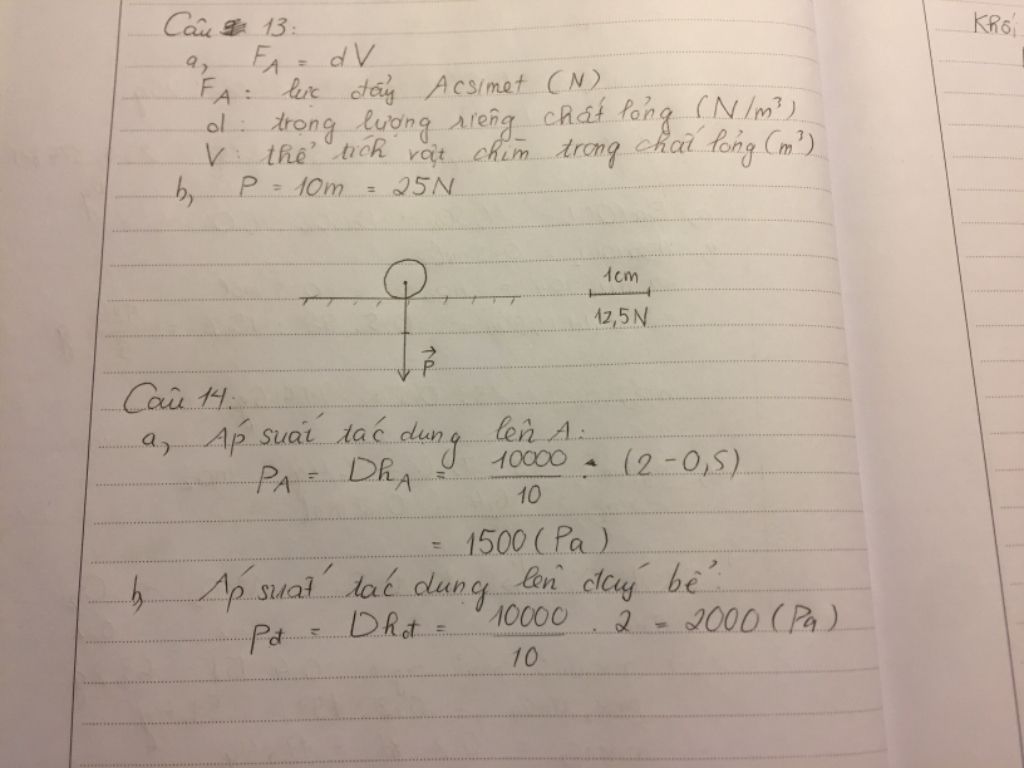 Câu 13:
a, F_A = dV
F_A: lực đẩy Acsimet (N)
d: trọng lượng riêng chất lỏng (N/m³)
V: thể tích vật chìm trong chất lỏng (m³)
b, P = 10m = 25N
1cm
12,5N
P⃗
Câu 14:
a, Áp suất tác dụng lên A:
p_A = Dh_A = 10000/10 . (2 - 0,5)
= 1500 (Pa)
b, Áp suất tác dụng lên đáy bể:
p_đ = Dh_đ = 10000/10 . 2 = 2000 (Pa)
Khối